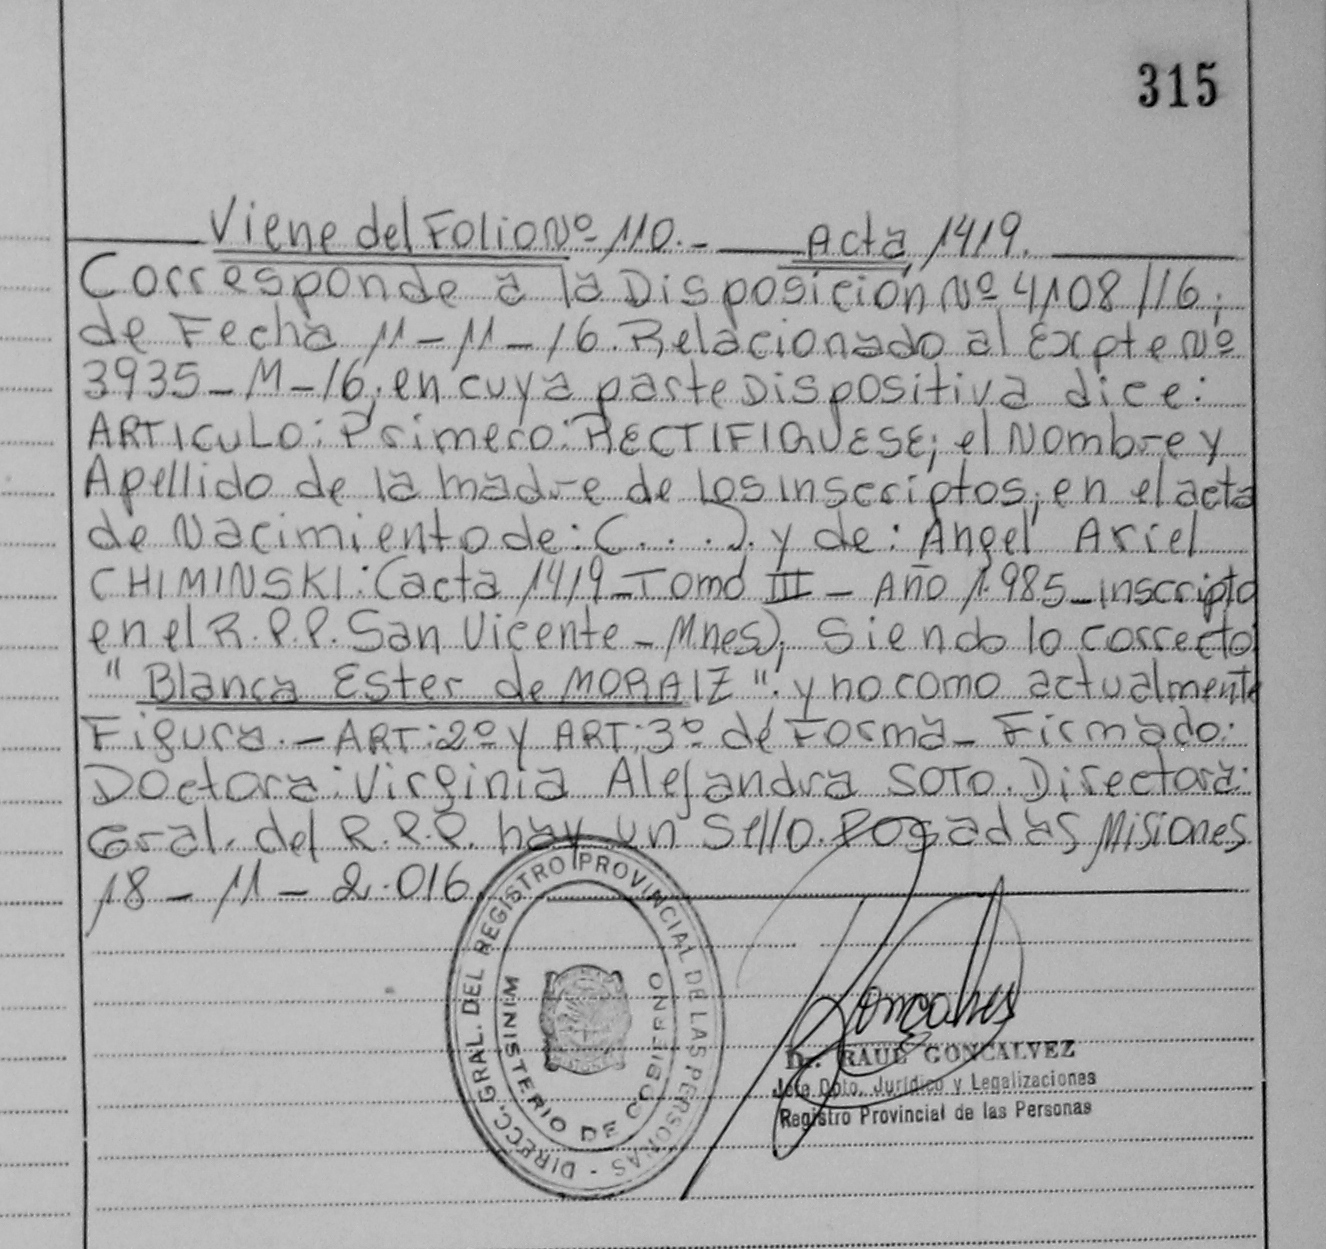 315
Viene del Folio Nº 110.- Acta 1419.
Corresponde a la Disposición Nº 4108/16;
de Fecha 11-11-16. Relacionado al Expte Nº
3935-M-16; en cuya parte Dispositiva dice:
ARTICULO: Primero: RECTIFIQUESE; el Nombre y
Apellido de la madre de los inscriptos; en el acta
de Nacimiento de: (....). y de: Angel Ariel
CHIMINSKI: (acta 1419-Tomo III - Año 1.985-inscripto
en el R.P.P. San Vicente-Mnes); Siendo lo correcto
"Blanca Ester de MORAIZ". y no como actualmente
Figura.- ART: 2º y ART: 3º de Forma- Firmado:
Doctora: Virginia Alejandra SOTO. Directora:
Gral. del R.P.P. hay un Sello. Posadas Misiones
18-11-2.016.
DIRECC. GRAL. DEL REGISTRO PROVINCIAL DE LAS PERSONAS -
MINISTERIO DE GOBIERNO
Goncalves
Dr. RAUL GONCALVEZ
Jefe Dpto. Jurídico y Legalizaciones
Registro Provincial de las Personas